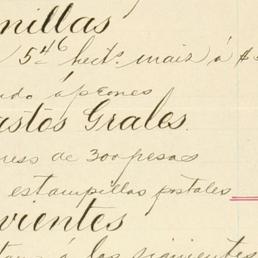 millas
5.46 hect.s maiz á $
ndo á peones
astos Grales.
ress de 300 pesos
estampillas postales
vientes
á los siguientes